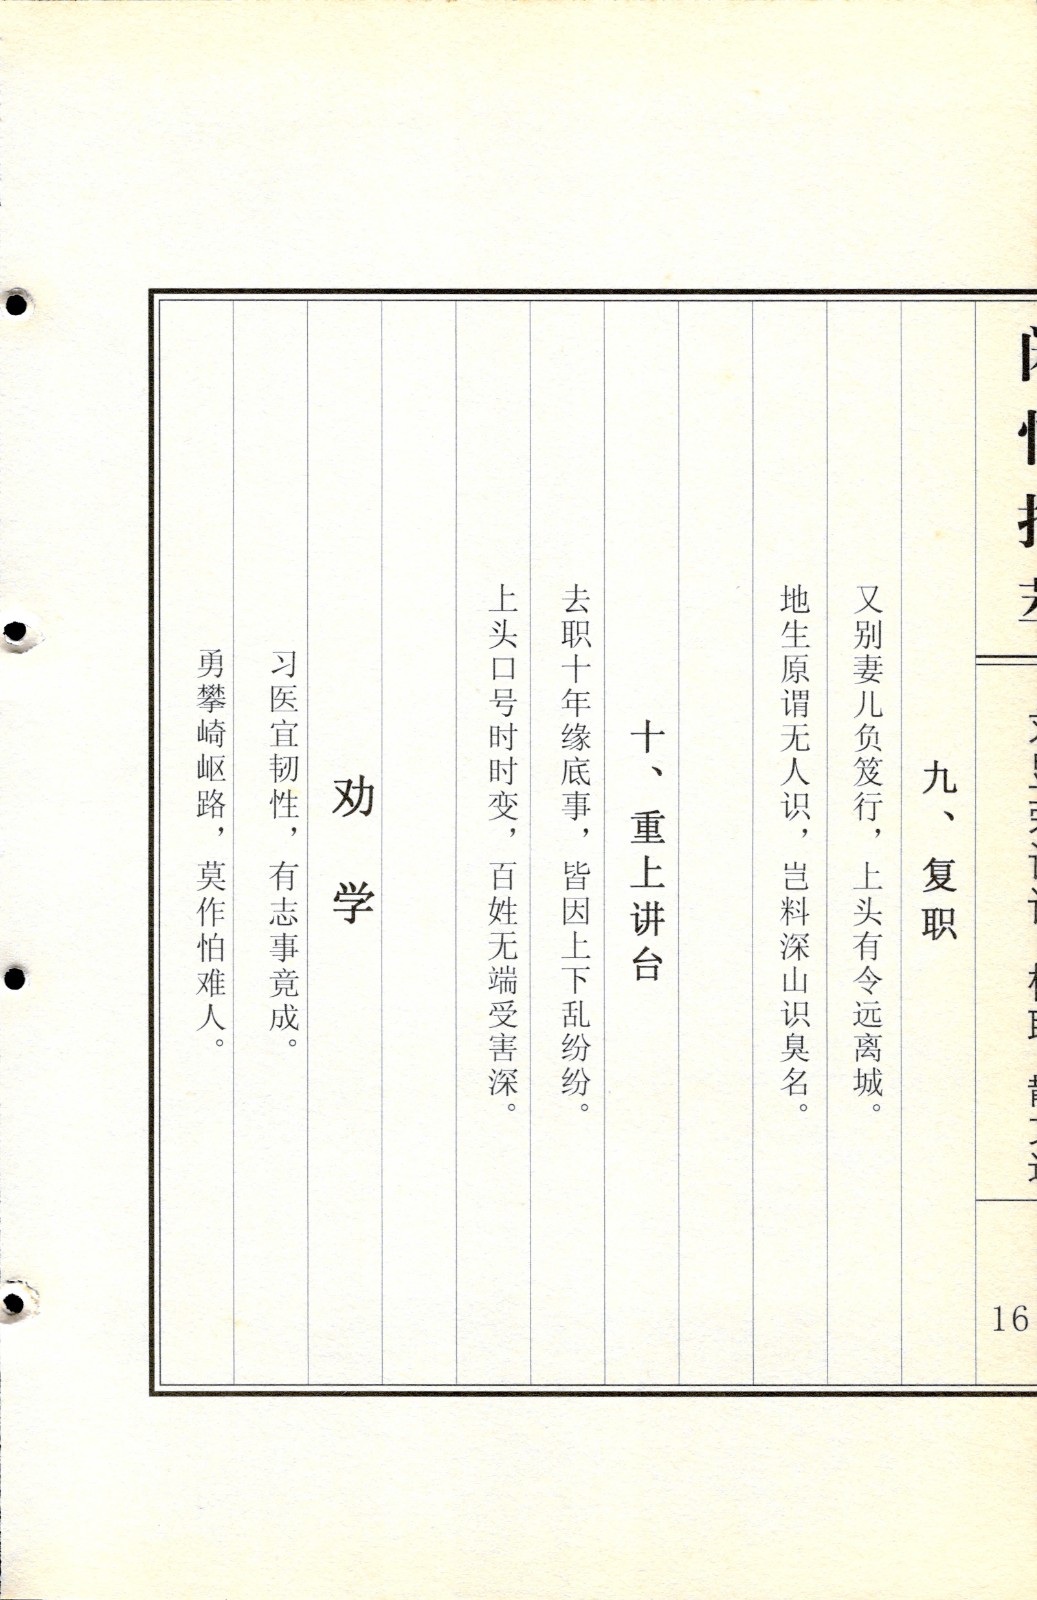 九、复职
又别妻儿负笈行，上头有令远离城。
地生原谓无人识，岂料深山识臭名。
十、重上讲台
去职十年缘底事，皆因上下乱纷纷。
上头口号时时变，百姓无端受害深。
劝学
习医宜韧性，有志事竟成。
勇攀崎岖路，莫作怕难人。
16